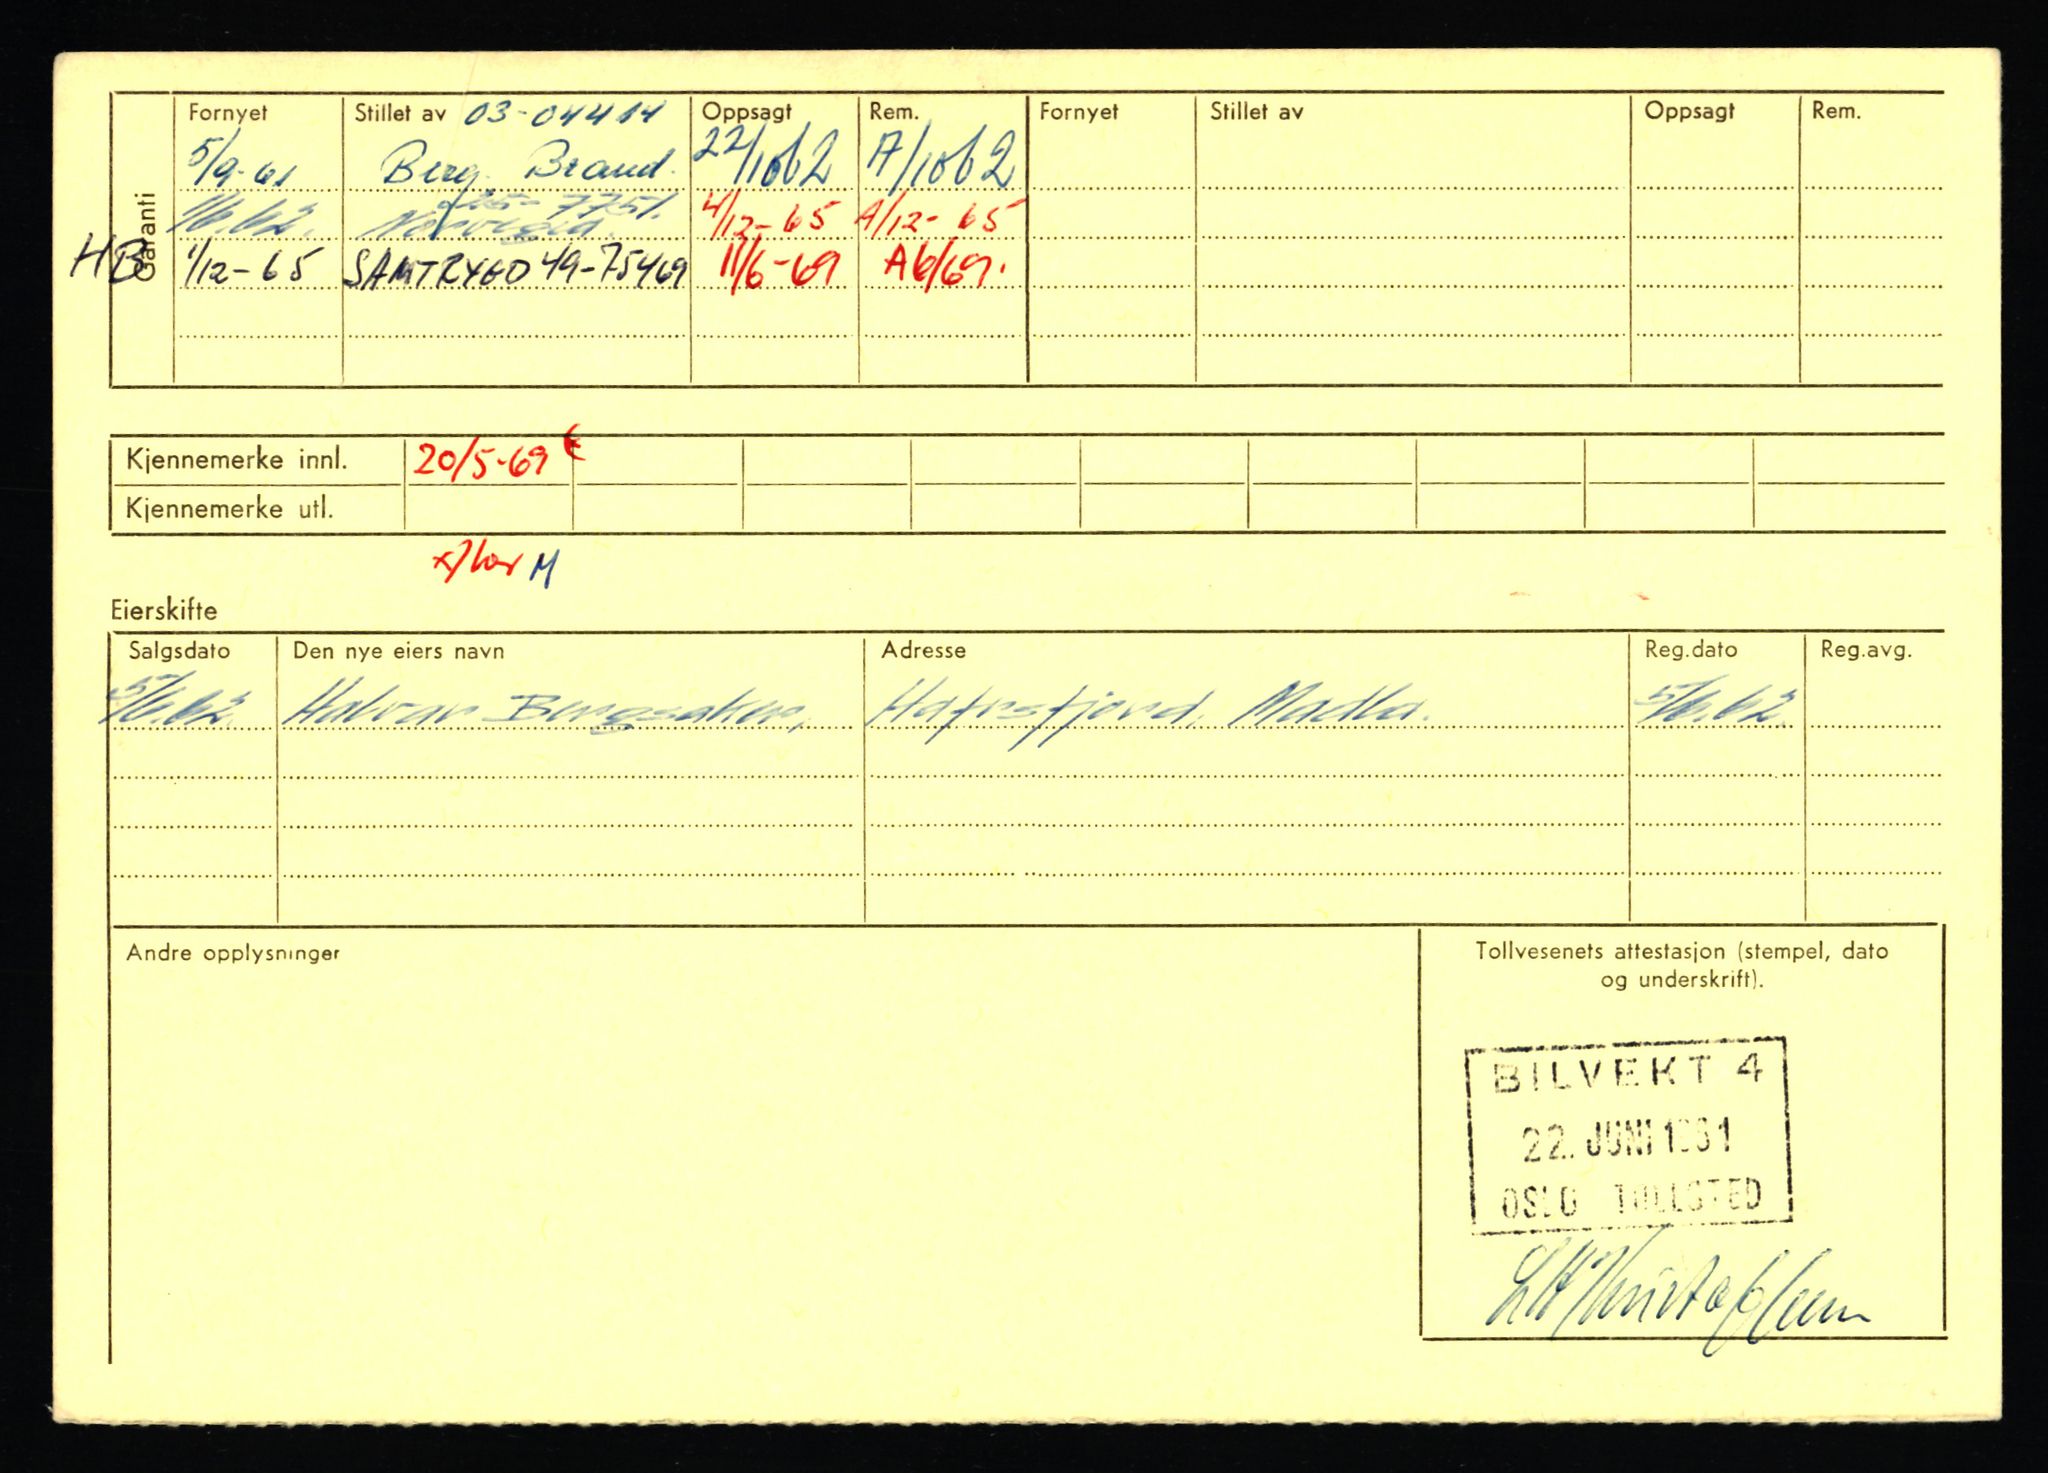 Garanti
Fornyet Stillet av 03-04414 Oppsagt Rem. Fornyet Stillet av Oppsagt Rem.
5/9-61 Berg. Brand. 22/10 62 A/10 62
1/6.62. Norvegia. 7751. 4/12-65 A/12-65
HB 1/12-65 SAMTRYGD 49-75469 11/6-69 A6/69.
Kjennemerke innl. 20/5-69
Kjennemerke utl.
x) har M
Eierskifte
Salgsdato Den nye eiers navn Adresse Reg.dato Reg.avg.
5/6.62. Halvar Bergsaker, Hafrsfjord, Madla. 5/6.62.
Andre opplysninger
Tollvesenets attestasjon (stempel, dato
og underskrift).
BILVEKT 4
22. JUNI 1961
OSLO TOLLSTED